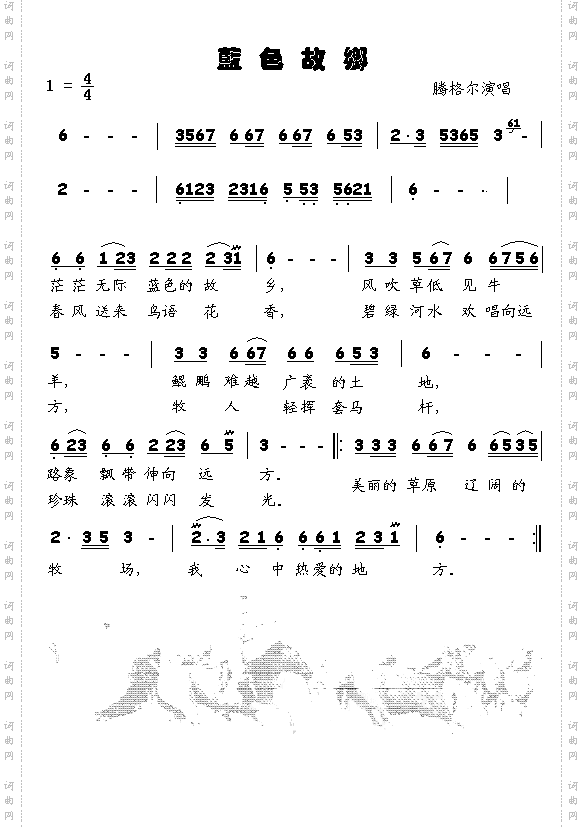 藍色故鄉
1 = 4/4
腾格尔演唱
6 - - - | 3567 6 67 6 67 6 53 | 2·3 5365 3 61 - |
2 - - - | 6123 2316 5 53 5621 | 6 - - - |
6 6 1 23 2 2 2 2 31 | 6 - - - | 3 3 5 67 6 6756 |
茫茫无际 蓝色的故 乡, 风吹草低 见牛
春风送来 鸟语花 香, 碧绿河水 欢唱向远
5 - - - | 3 3 6 67 6 6 6 5 3 | 6 - - - |
羊, 鲲鹏难越 广袤的土 地,
方, 牧人 轻挥套马 杆,
6 23 6 6 2 23 6 5 | 3 - - - ‖: 3 3 3 6 67 6 6535 |
路象飘带伸向远 方。 美丽的草原 辽阔的
珍珠滚滚闪闪发 光。
2· 3 5 3 - | 2·3 2 1 6 6 6 1 2 3 1 | 6 - - - :‖
牧场, 我心中热爱的地 方。
词曲网